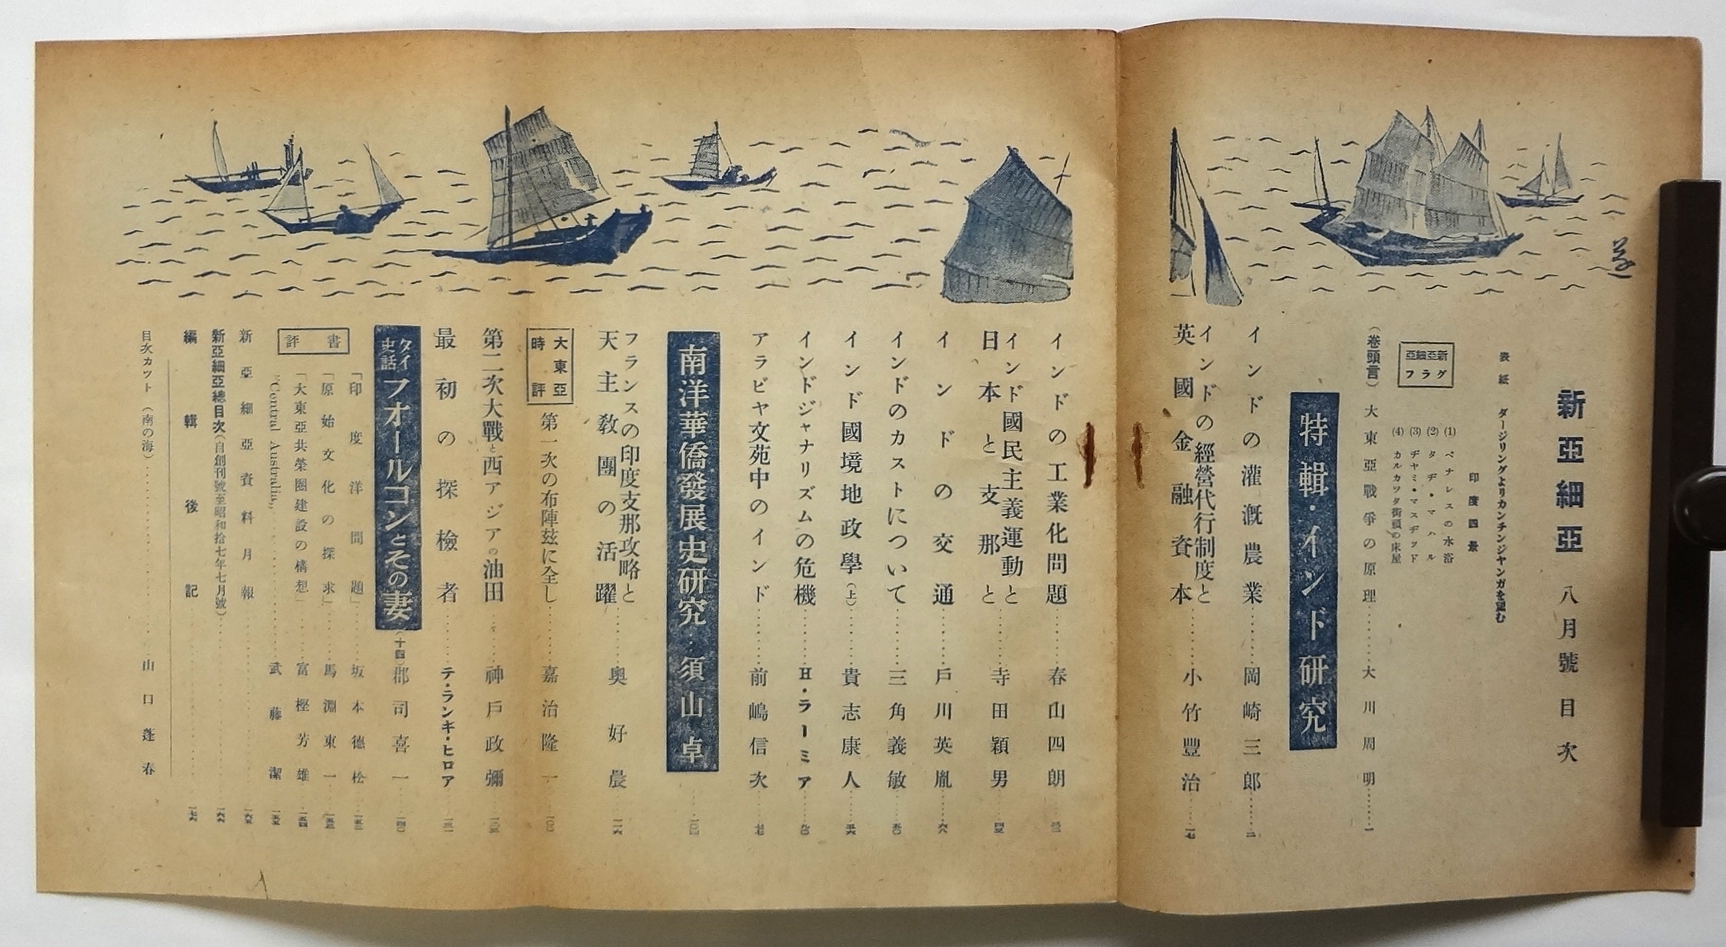 新亞細亞 八月號 目次
表紙 ダージリングよりカンチンジヤンガを望む
新亞細亞グラフ
印度四景
(1) ベナレスの水浴
(2) タヂ・マハル
(3) ヂヤミ・マスヂツド
(4) カルカツタ街頭の床屋
(卷頭言) 大東亞戰爭の原理……大川周明……一
特輯・インド研究
インドの灌漑農業……岡崎三郎……二
インドの經營代行制度と英國金融資本……小竹豐治……一七
インドの工業化問題……春山四朗
インド國民主義運動と日本と支那と……寺田穎男……四五
インドの交通……戶川英胤……六八
インドのカストについて……三角義敏
インド國境地政學(上)……貴志康人
インドジャナリズムの危機……H・ラーミア
アラビヤ文苑中のインド……前嶋信次
南洋華僑發展史研究・須山卓……一〇四
フランスの印度支那攻略と天主教團の活躍……奧好晨……一一六
大東亞時評
第一次の布陣茲に全し……嘉治隆一
第二次大戰と西アジアの油田……神戶政彌
最初の探檢者……テ・ランキ・ヒロア
タイ史話 フオールコンとその妻(十四) 郡司喜一
書評
「印度洋問題」……坂本德松
「原始文化の探求」……馬淵東一
「大東亞共榮圈建設の構想」……富樫芳雄
"Central Australia"……武藤潔
新亞細亞資料月報
新亞細亞總目次(自創刊號至昭和拾七年七月號)
編輯後記
目次カツト (南の海)……山口蓬春